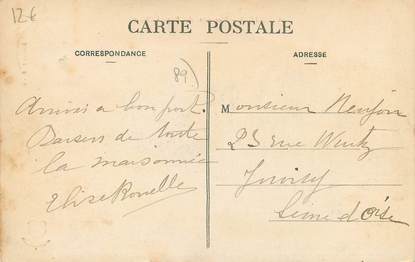 12€
CARTE POSTALE
CORRESPONDANCE
ADRESSE
89)
Arrivés a bon port.
Baisers de toute
la maisonnée
Elise Rouelle
Monsieur
23 rue Wurtz
Juvisy
Seine d'Oise